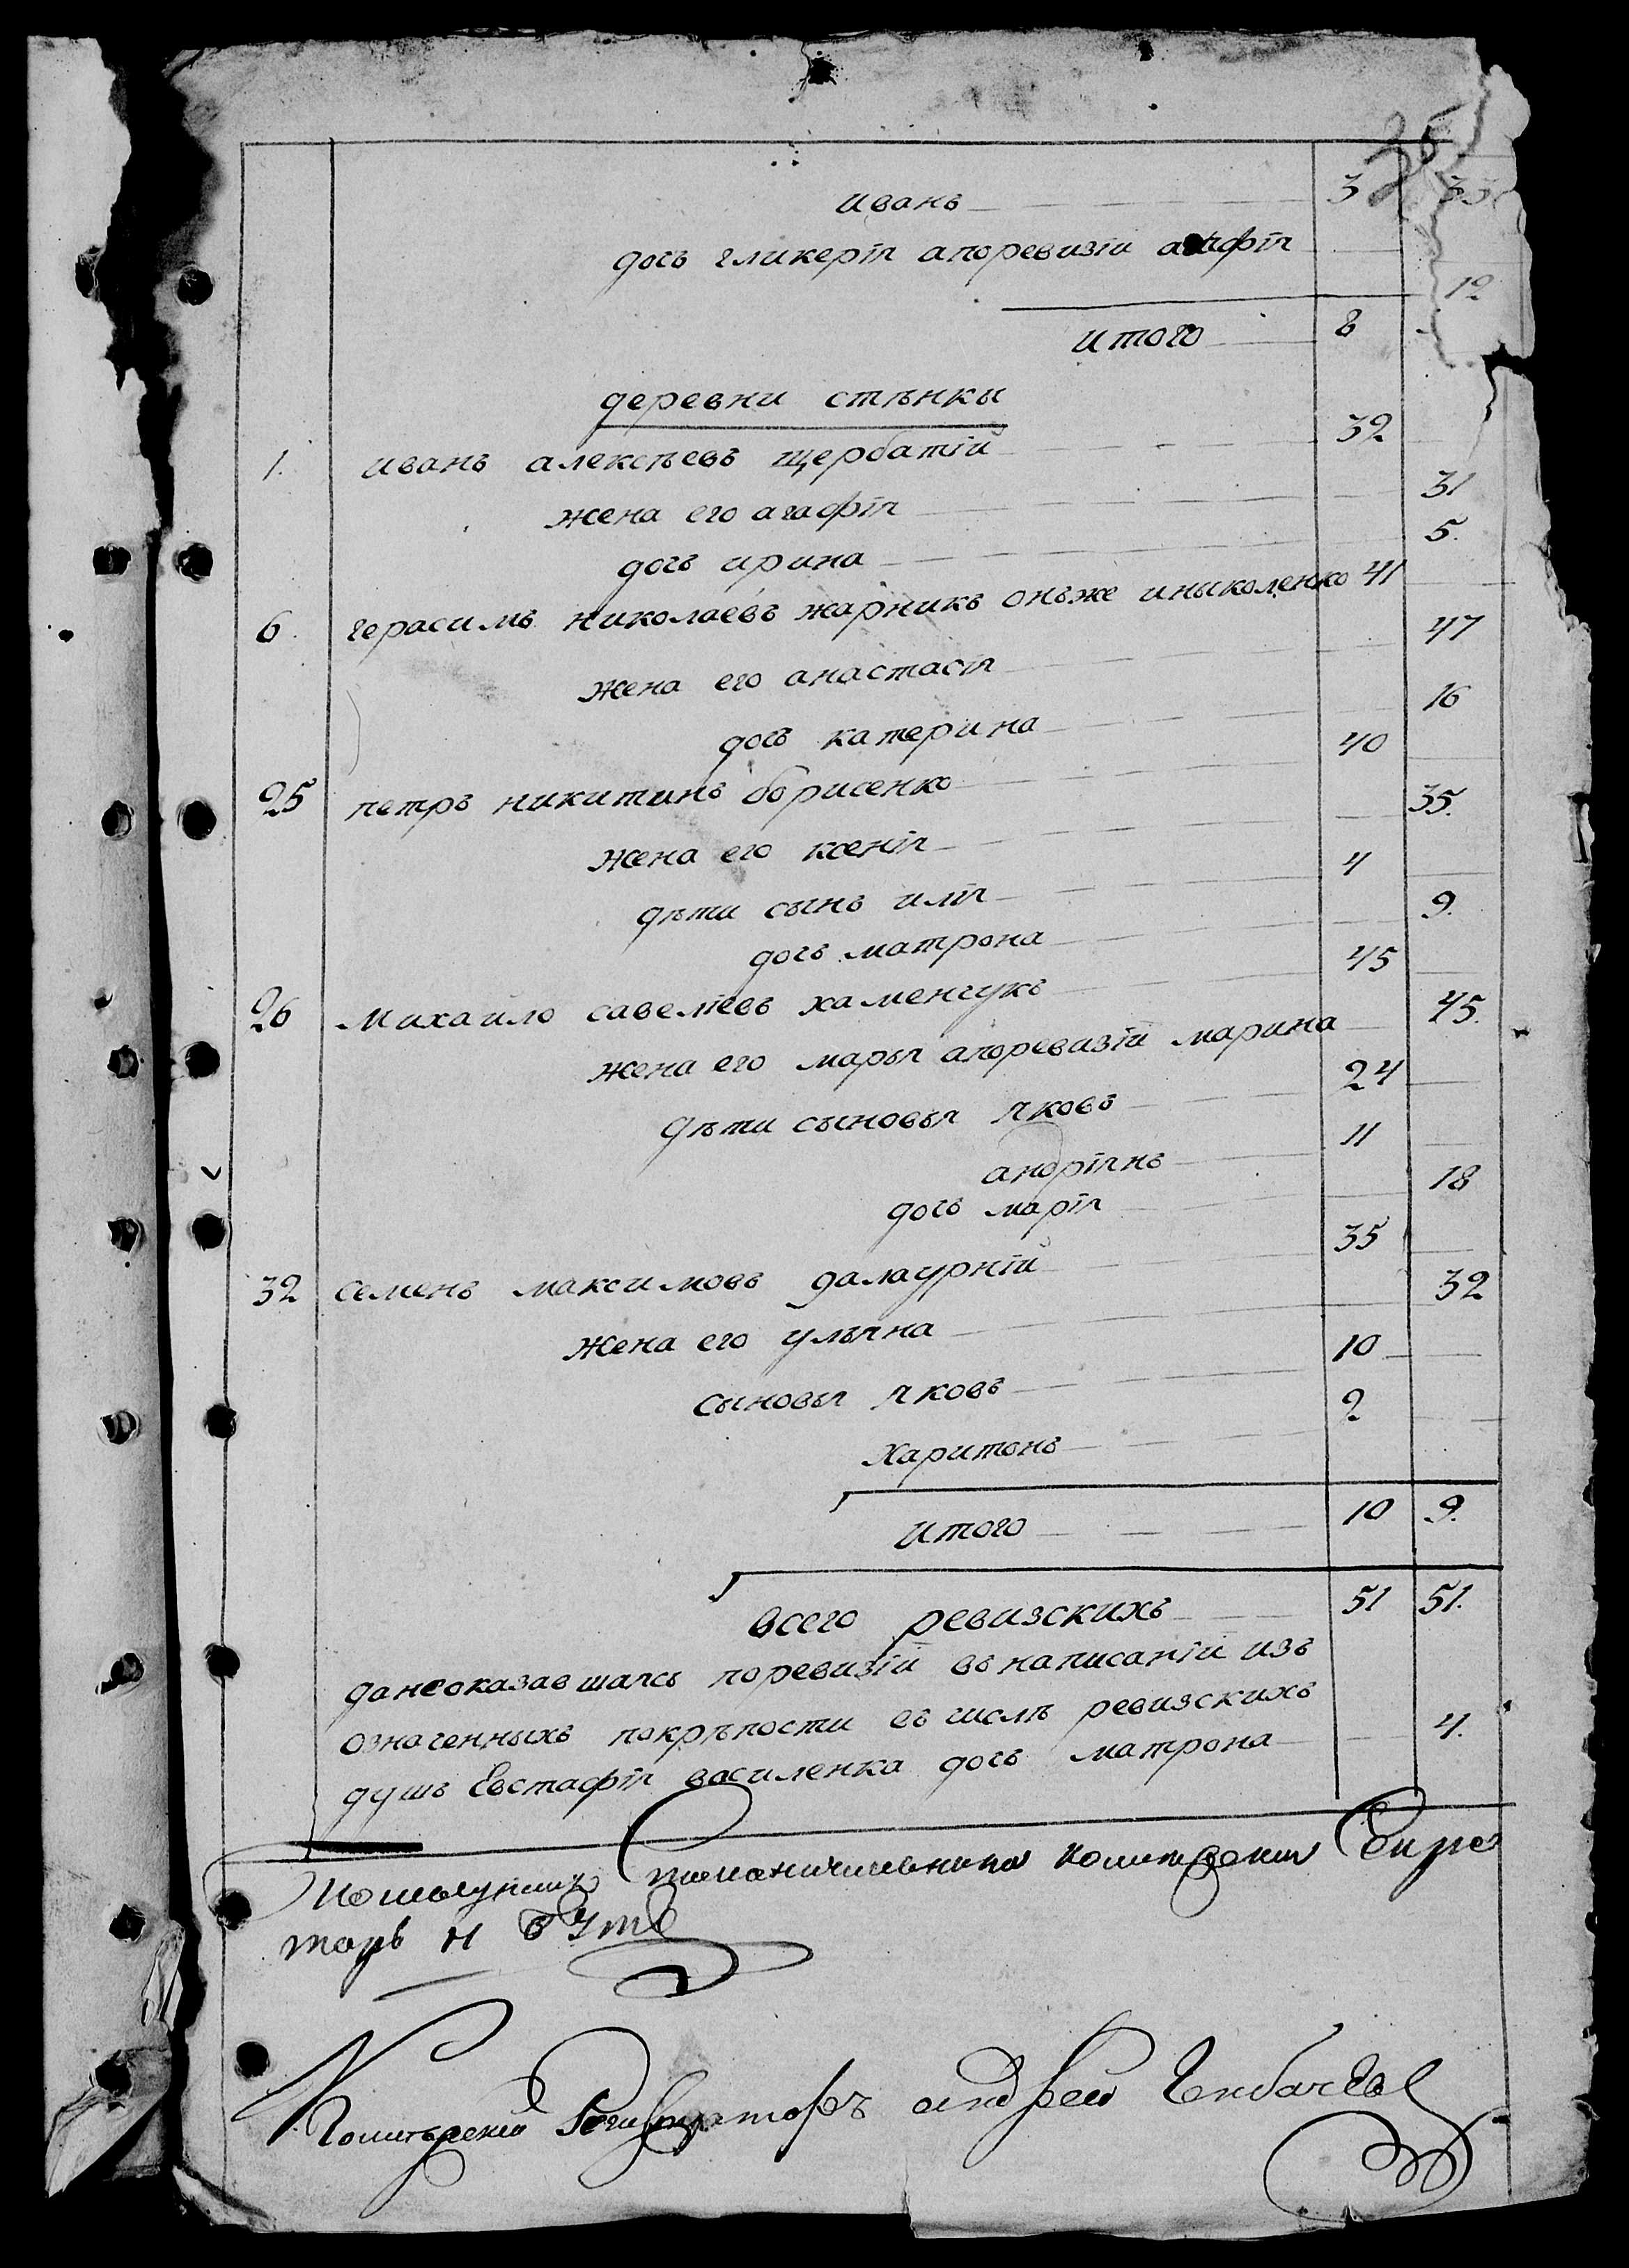 35
иванъ 3 33
дочь гликерія апоревизіи агафія 12
итого 8
деревни стѣнки
1. иванъ алексѣевъ щербатій 32
жена его агафія 31
дочь ирина 5.
6. герасимъ николаевъ жарникъ онъже иныколенко 41
жена его анастасія 47
дочь катерина 16
25 петръ никитинъ борисенко 40
жена его ксенія 35.
дѣти сынъ илія 4
дочь матрона 9.
26 михайло савелиевъ хаменчукъ 45
жена его марья апоревизіи марина 45.
дѣти сыновья яковъ 24
андріянъ 11
дочь марія 18
32 семенъ максимовъ далаурній 35
жена его ульяна 32
сыновья яковъ 10
харитонъ 2
итого 10 9.
всего ревизскихъ 51 51.
данеоказавшаясь поревизіи въ написаніи изъ
означенныхъ покрѣпости въ числѣ ревизскихъ
душъ Евстафія василенка дочь матрона 4.
тарь и
андрей